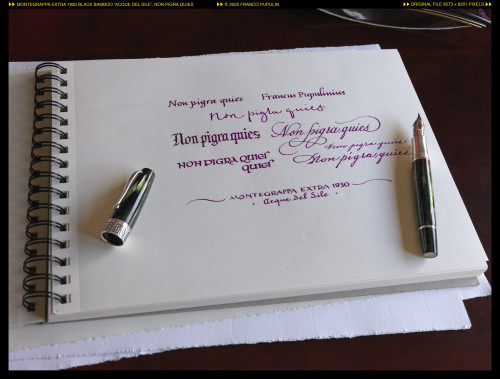 MONTEGRAPPA EXTRA 1930 BLACK BAMBOO 'ACQUE DEL SILE', NON PIGRA QUIES
© 2025 FRANCO PUPULIN
ORIGINAL FILE 8273 × 6201 PIXELS
Non pigra quies Francus Pupulinius
Non pigra quies
Non pigra quies Non pigra quies
Non pigra quies
NON PIGRA QUIES Non pigra quies
quies
MONTEGRAPPA EXTRA 1930
Acque del Sile